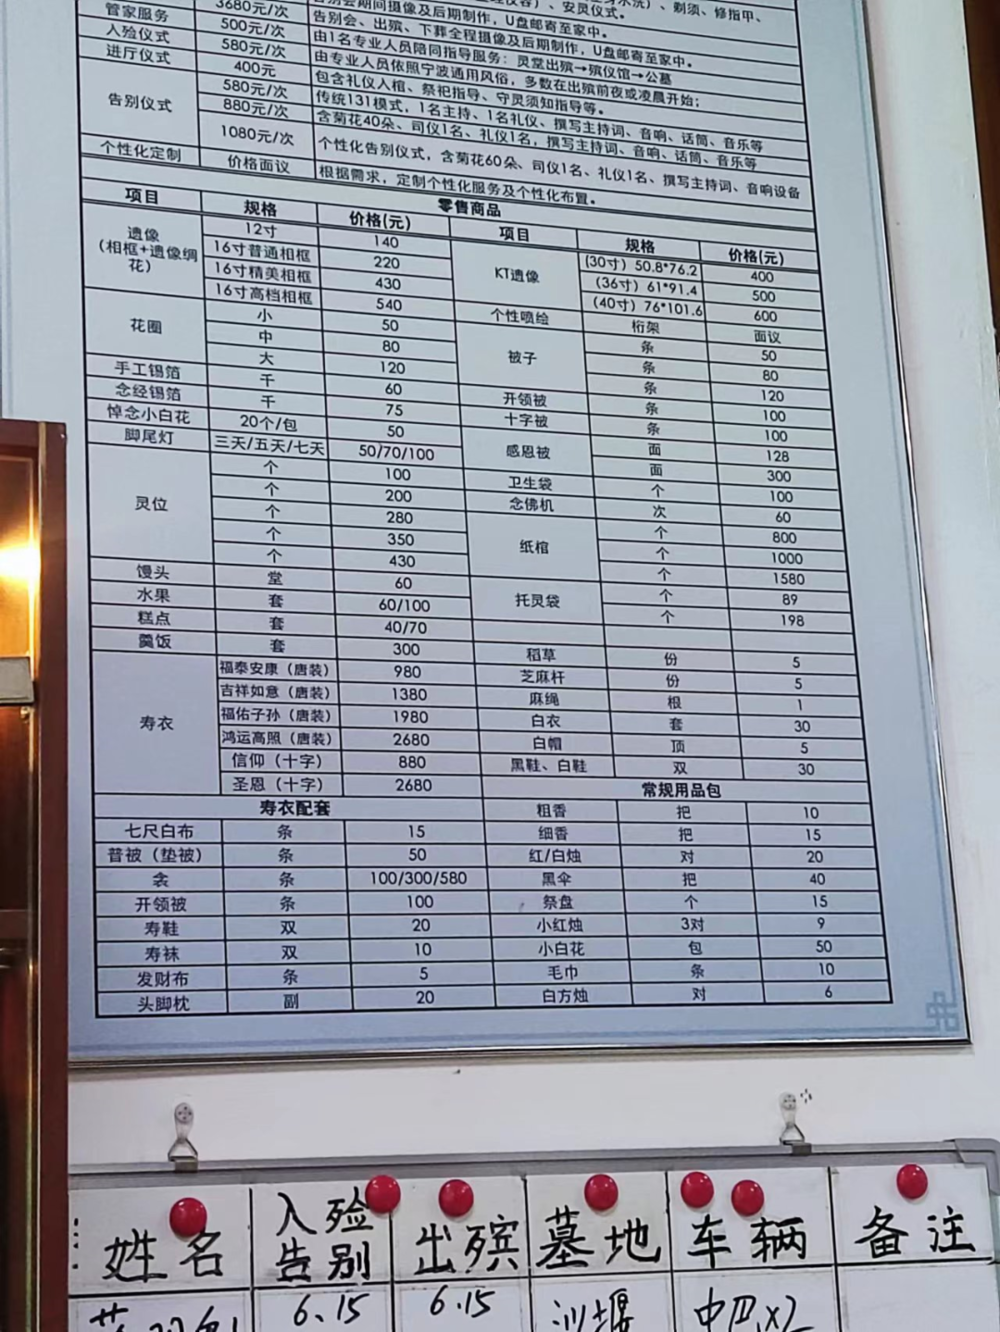 管家服务 3680元/次
告别会期间摄像及后期制作，U盘邮寄至家中。
入殓仪式 500元/次 告别会、出殡、下葬全程摄像及后期制作，U盘邮寄至家中。
进厅仪式 580元/次 由1名专业人员陪同指导服务：灵堂出殡→殡仪馆→公墓
400元 由专业人员依照宁波通用风俗，多数在出殡前夜或凌晨开始；
告别仪式 580元/次 包含礼仪入棺、祭祀指导、守灵须知指导等。
880元/次 传统131模式，1名主持、1名礼仪、撰写主持词、音响、话筒、音乐等
含菊花40朵、司仪1名、礼仪1名，撰写主持词、音响、话筒、音乐等
1080元/次 个性化告别仪式，含菊花60朵、司仪1名、礼仪1名、撰写主持词、音响设备
个性化定制 价格面议 根据需求，定制个性化服务及个性化布置。
零售商品
项目 规格 价格(元) 项目 规格 价格(元)
遗像（相框+遗像绸花） 12寸 140
16寸普通相框 220
16寸精美相框 430
16寸高档相框 540
花圈 小 50
中 80
大 120
手工锡箔 千 60
念经锡箔 千 75
悼念小白花 20个/包 50
脚尾灯 三天/五天/七天 50/70/100
灵位 个 100
个 200
个 280
个 350
个 430
馒头 堂 60
水果 套 60/100
糕点 套 40/70
羹饭 套 300
寿衣 福泰安康（唐装） 980
吉祥如意（唐装） 1380
福佑子孙（唐装） 1980
鸿运高照（唐装） 2680
信仰（十字） 880
圣恩（十字） 2680
KT遗像 (30寸) 50.8*76.2 400
(36寸) 61*91.4 500
(40寸) 76*101.6 600
个性喷绘 桁架 面议
被子 条 50
条 80
条 120
开领被 条 100
十字被 条 100
感恩被 面 128
面 300
卫生袋 个 100
念佛机 次 60
纸棺 个 800
个 1000
个 1580
托灵袋 个 89
个 198
稻草 份 5
芝麻杆 份 5
麻绳 根 1
白衣 套 30
白帽 顶 5
黑鞋、白鞋 双 30
寿衣配套
七尺白布 条 15
普被（垫被） 条 50
衾 条 100/300/580
开领被 条 100
寿鞋 双 20
寿袜 双 10
发财布 条 5
头脚枕 副 20
常规用品包
粗香 把 10
细香 把 15
红/白烛 对 20
黑伞 把 40
祭盘 个 15
小红烛 3对 9
小白花 包 50
毛巾 条 10
白方烛 对 6
姓名 入殓告别 出殡 墓地 车辆 备注
6.15 6.15